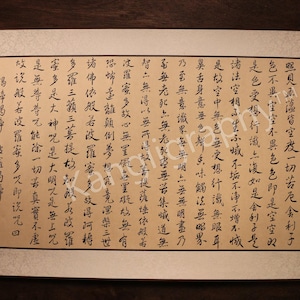 照見五蘊皆空度一切苦厄舍利子
色不異空空不異色色即是空空即
是色受想行識亦復如是舍利子是
諸法空相不生不滅不垢不淨不增不減
是故空中無色無受想行識無眼耳
鼻舌身意無色聲香味觸法無眼界
乃至無意識界無無明亦無無明盡乃
至無老死亦無老死盡無苦集滅道無
智亦無得以無所得故菩提薩埵依般若
波羅蜜多故心無罣礙無罣礙故無有
恐怖遠離顛倒夢想究竟涅槃三世
諸佛依般若波羅蜜多故得阿耨
多羅三藐三菩提故知般若波羅
蜜多是大神咒是大明咒是無上咒
是無等等咒能除一切苦真實不虛
故說般若波羅蜜多咒即說咒曰